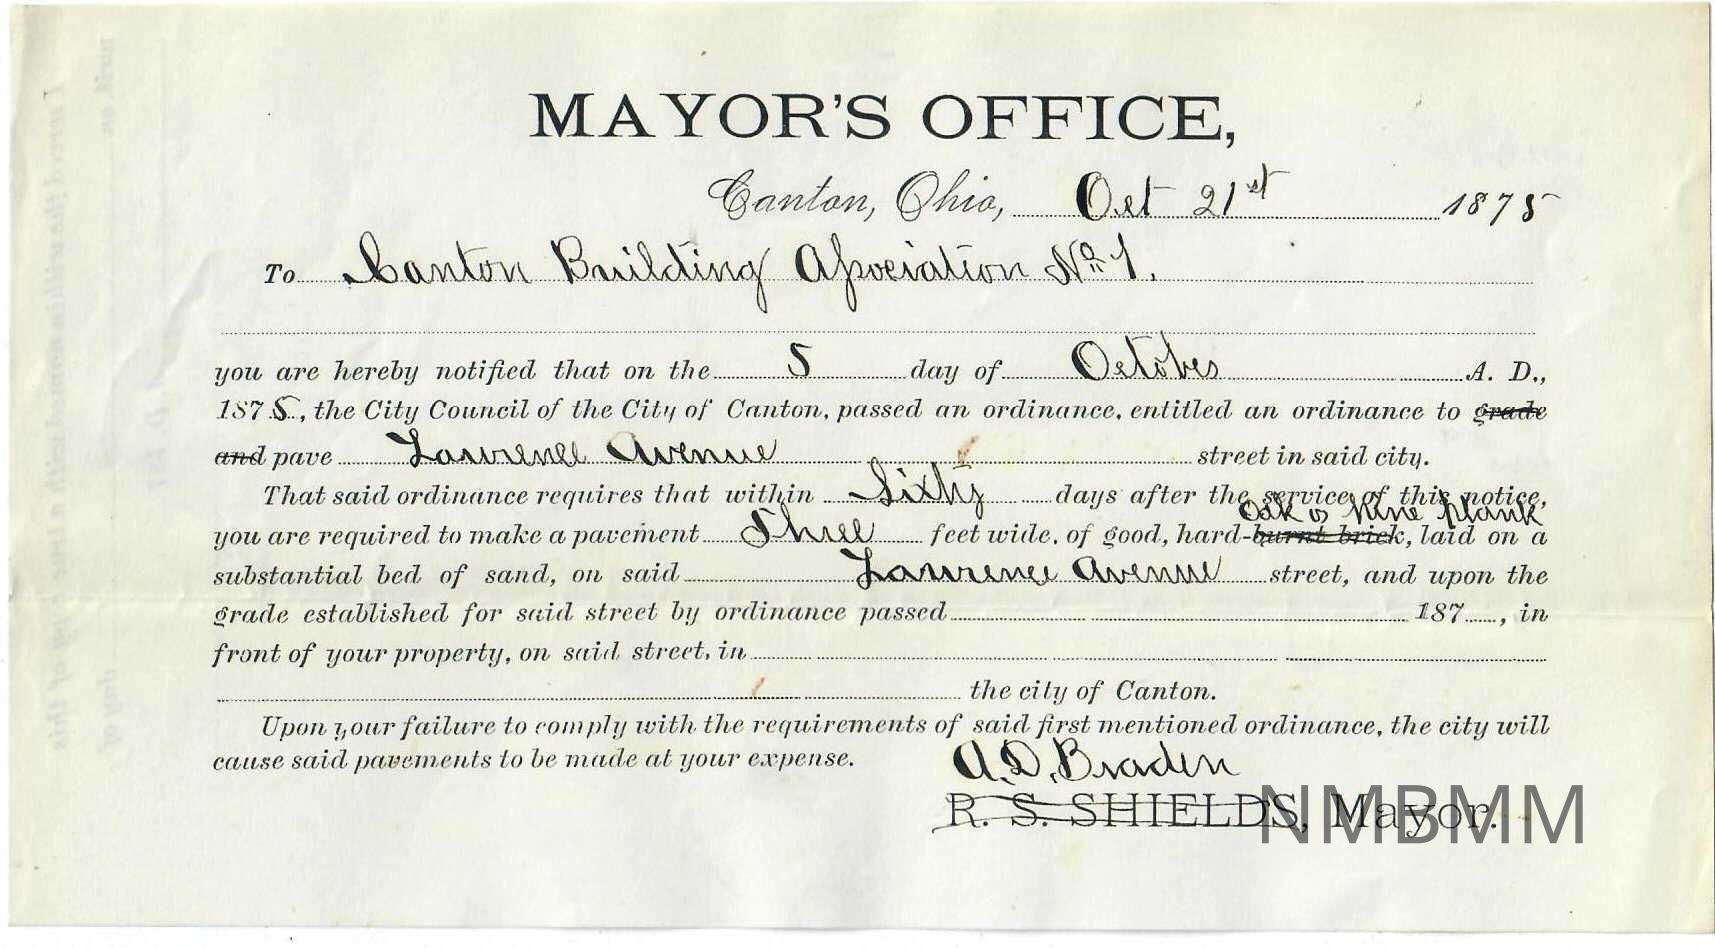 MAYOR'S OFFICE,
Canton, Ohio, Oct 21st 1875
To Canton Building Association No 1.
you are hereby notified that on the 5 day of October A. D.,
1875, the City Council of the City of Canton, passed an ordinance, entitled an ordinance to grade
and pave Lawrence Avenue street in said city.
That said ordinance requires that within Sixty days after the service of this notice,
Oak or Pine plank
you are required to make a pavement Three feet wide, of good, hard-burnt brick, laid on a
substantial bed of sand, on said Lawrence Avenue street, and upon the
grade established for said street by ordinance passed 187 , in
front of your property, on said street, in
the city of Canton.
Upon your failure to comply with the requirements of said first mentioned ordinance, the city will
cause said pavements to be made at your expense.
A. D. Braden
R. S. SHIELDS, Mayor.
NMBMM